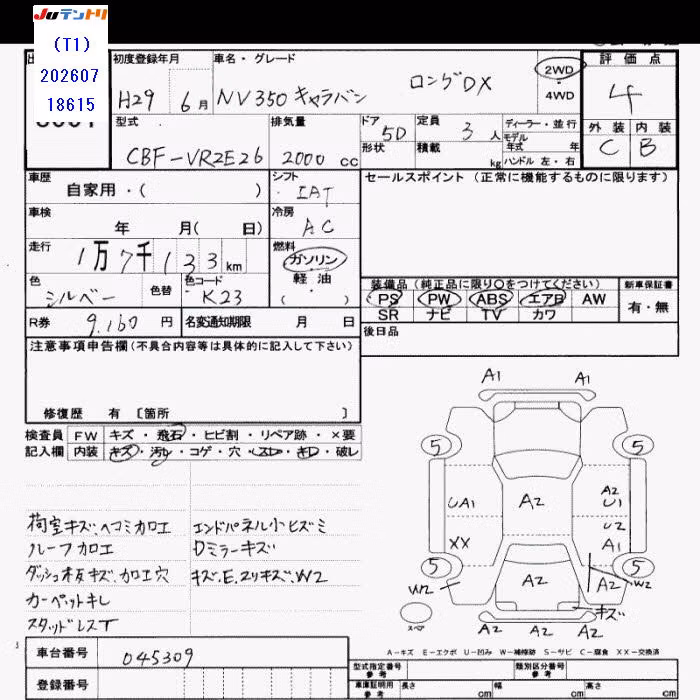 Juテントリ
(T1)
202607
18615
初度登録年月
車名・グレード
評価点
H29 6月
NV350キャラバン
ロングDX
2WD
・
4WD
4
外装 内装
C B
型式
排気量
ドア
5D
定員
3人
ディーラー・並行
モデル
年式 年
ハンドル 左・右
CBF-VR2E26
2000 cc
形状
積載
kg
車歴
自家用・( )
シフト
IAT
セールスポイント (正常に機能するものに限ります)
車検
年 月( 日)
冷房
AC
走行
1万7千133km
燃料
ガソリン
軽油
( ・ )
色
シルバー
色替
色コード
K23
装備品(純正品に限り○をつけてください)
新車保証書
PS PW ABS エアB AW
有・無
SR ナビ TV カワ
R券 9,160 円
名変通知期限 月 日
後日品
注意事項申告欄(不具合内容等は具体的に記入して下さい)
修復歴 有 〔箇所 〕
検査員 FW キズ・飛石・ヒビ割・リペア跡・×要
記入欄 内装 キズ・汚レ・コゲ・穴・スレ・キレ・破レ
荷室キズ、ヘコミカロエ
ルーフカロエ
ダッシュ板キズ、カロエ穴
カーペットキレ
スタッドレスT
エンドパネル小ヒズミ
Dミラーキズ
キズ、E、スリキズ、W2
A1 A1
5 5
UA1 A2 A2
U1
U2
XX A1
5 5
W2 A2 A2 W2
キズ
スペア
A2 A2 A2
A-キズ E-エクボ U-凹み W-補修跡 S-サビ C-腐食 XX-交換済
車台番号 045309
登録番号
型式指定番号
参考
類別区分番号
参考
車庫証明用
参考
長さ cm 幅 cm 高さ cm